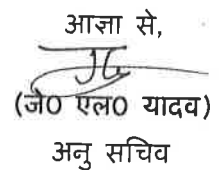 आज्ञा से,
(जे0 एल0 यादव)
अनु सचिव